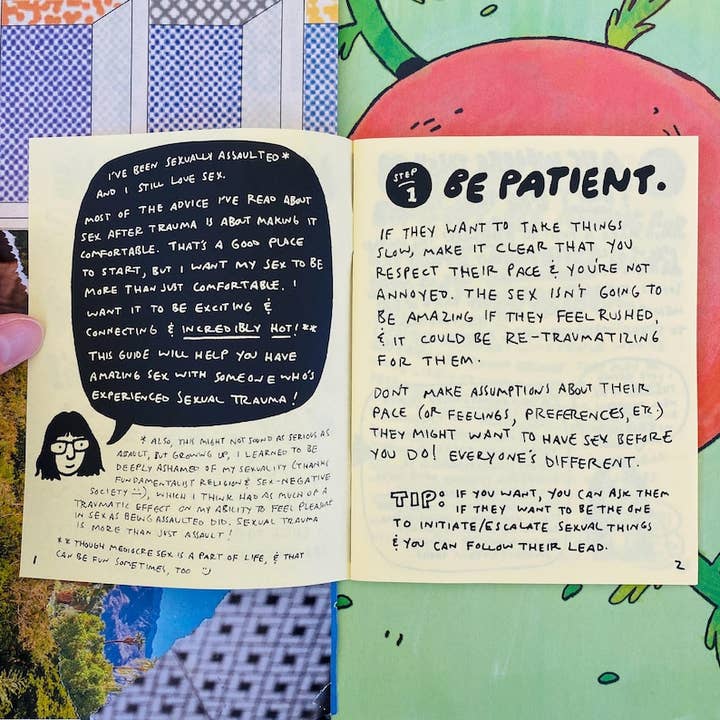 I'VE BEEN SEXUALLY ASSAULTED*
AND I STILL LOVE SEX.
MOST OF THE ADVICE I'VE READ ABOUT
SEX AFTER TRAUMA IS ABOUT MAKING IT
COMFORTABLE. THAT'S A GOOD PLACE
TO START, BUT I WANT MY SEX TO BE
MORE THAN JUST COMFORTABLE. I
WANT IT TO BE EXCITING &
CONNECTING & INCREDIBLY HOT!**
THIS GUIDE WILL HELP YOU HAVE
AMAZING SEX WITH SOMEONE WHO'S
EXPERIENCED SEXUAL TRAUMA!
* ALSO, THIS MIGHT NOT SOUND AS SERIOUS AS
ASSAULT, BUT GROWING UP, I LEARNED TO BE
DEEPLY ASHAMED OF MY SEXUALITY (THANKS
FUNDAMENTALIST RELIGION & SEX-NEGATIVE
SOCIETY), WHICH I THINK HAD AS MUCH OF A
TRAUMATIC EFFECT ON MY ABILITY TO FEEL PLEASURE
IN SEX AS BEING ASSAULTED DID. SEXUAL TRAUMA
IS MORE THAN JUST ASSAULT!
** THOUGH MEDIOCRE SEX IS A PART OF LIFE, & THAT
CAN BE FUN SOMETIMES, TOO
1
STEP
1
BE PATIENT.
IF THEY WANT TO TAKE THINGS
SLOW, MAKE IT CLEAR THAT YOU
RESPECT THEIR PACE & YOU'RE NOT
ANNOYED. THE SEX ISN'T GOING TO
BE AMAZING IF THEY FEEL RUSHED,
& IT COULD BE RE-TRAUMATIZING
FOR THEM.
DON'T MAKE ASSUMPTIONS ABOUT THEIR
PACE (OR FEELINGS, PREFERENCES, ETC.)
THEY MIGHT WANT TO HAVE SEX BEFORE
YOU DO! EVERYONE'S DIFFERENT.
TIP: IF YOU WANT, YOU CAN ASK THEM
IF THEY WANT TO BE THE ONE
TO INITIATE/ESCALATE SEXUAL THINGS
& YOU CAN FOLLOW THEIR LEAD.
2